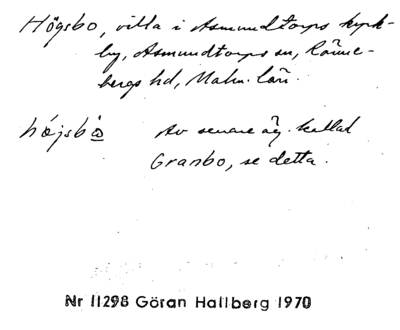 Högsbo, villa i Asmundtorps kyrk-
by, Asmundtorps sn, Rönne-
bergs hd, Malm. län.
högsbo Av senare äg. kallad
Granbo, se detta.
Nr 11298 Göran Hallberg 1970